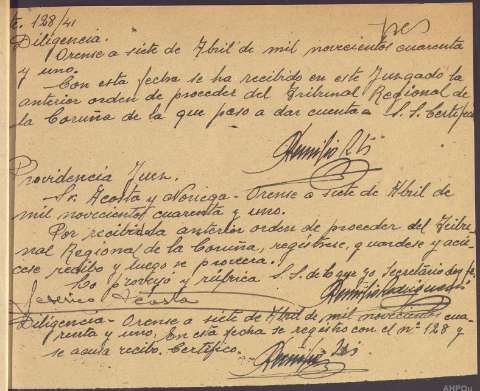 128/41
Diligencia.
Orense a siete de Abril de mil novecientos cuarenta
y uno.
Con esta fecha se ha recibido en este Juzgado la
anterior orden de proceder del Tribunal Regional de
la Coruña de la que paso a dar cuenta a S.S. Certifico
Providencia Juez.
Sr. Acosta y Noriega - Orense a siete de Abril de
mil novecientos cuarenta y uno.
Por recibida la anterior orden de proceder del Tribu-
nal Regional de la Coruña, regístrese, guardese y acú-
sese recibo y luego se proveera.
Lo proveyó y rúbrica S.S. de lo que yo Secretario doy fe,
Diligencia - Orense a siete de Abril de mil novecientos cua-
renta y uno, En esta fecha se registro con el nº 128 y
se acusa recibo. Certifico.
AHPOu